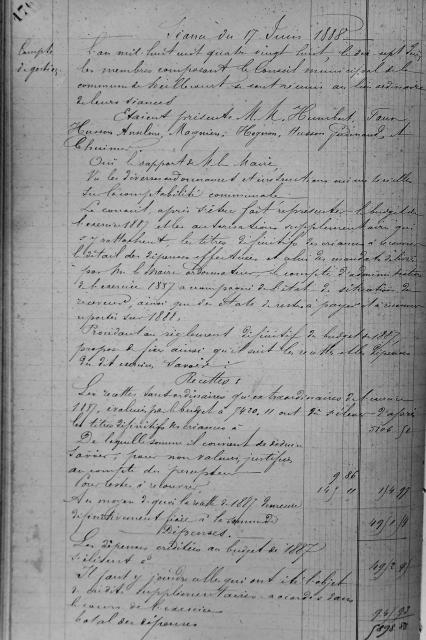 Séance du 17 Juin 1888
Compte
de gestion
L'an mil huit cent quatre vingt huit le dix-sept Juin
les membres composant le Conseil municipal de la
commune de se sont réunis au lieu ordinaire
de leurs séances
Etaient présents M.M. Humbert,
Husson Magnien, Husson
Oui le rapport de M. le Maire
Vu les diverses ordonnances et instructions
sur la comptabilité communale
Le conseil, après s'être fait représenter le budget de
l'exercice 1887 et les autorisations supplémentaires qui
s'y rattachent, les titres définitifs des créances à recouvrer
l'état des dépenses effectuées et celui des mandats délivrés
par M. le Maire ordonnateur, le compte d'administration
de l'exercice 1887 accompagné de l'état de situation du
receveur, ainsi que de états de restes à payer et à recouvrer
reportés sur 1888.
Procédant au règlement définitif du budget de 1887,
propose de fixer ainsi qu'il suit les recettes et les dépenses
du dit exercice, savoir :
Recettes :
Les recettes tant ordinaires qu'extraordinaires de l'exercice
1887, évaluées par le budget à 7420,11 ont dû s'élever d'après
les titres définitifs des créances à
De laquelle somme il convient de déduire
savoir, pour non valeurs justifiées
au compte du percepteur
9 86
Pour restes à recouvrer
145 11
Au moyen de quoi la recette de 1887 demeure
définitivement fixée à la somme de
Dépenses.
Les dépenses créditées au budget de 1887
s'élèvent à
Il faut y joindre celles qui ont été l'objet
de crédits supplémentaires accordés dans
le cours de l'exercice
total des dépenses